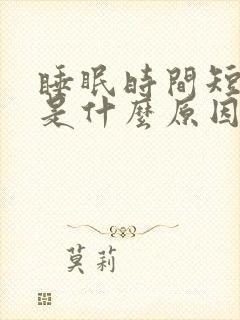 睡眠時間短
是什麼原因
莫莉